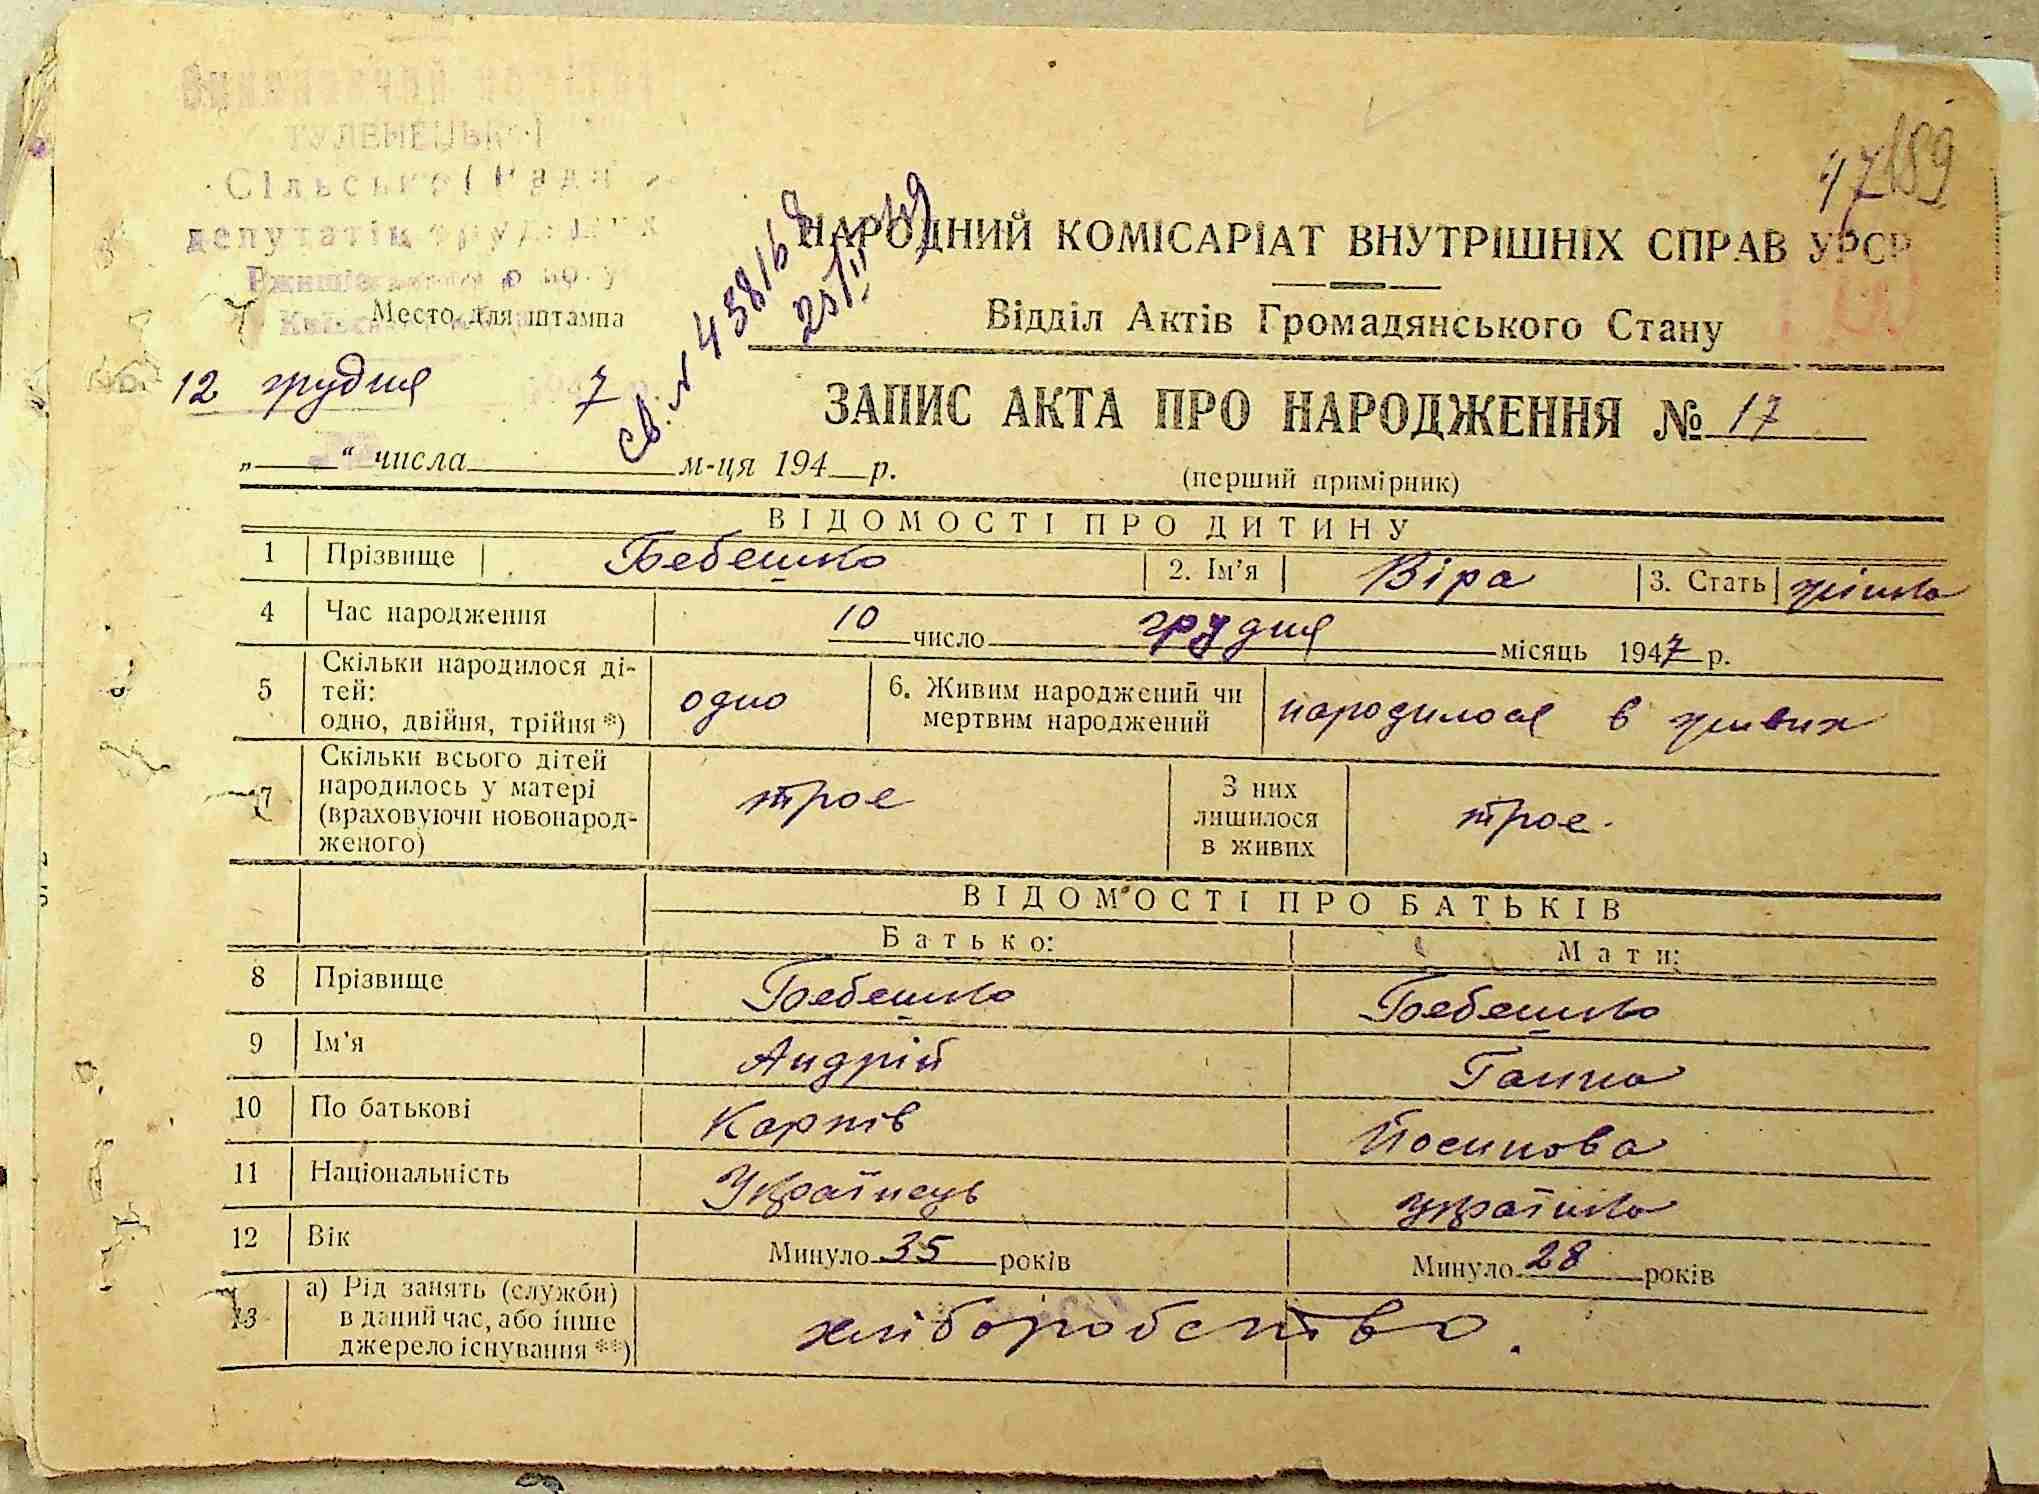 Виконавчий комітет
ТУЛЕНЕЦЬКОЇ
Сільської Ради
депутатів трудящих
Ржищівського р-ну
Место для штампа
12 грудня 7
св. № 438168
47
189
НАРОДНИЙ КОМІСАРІАТ ВНУТРІШНІХ СПРАВ УРСР
Відділ Актів Громадянського Стану
ЗАПИС АКТА ПРО НАРОДЖЕННЯ № 17
„ “ числа м-ця 194 р.
(перший примірник)
ВІДОМОСТІ ПРО ДИТИНУ
1 Прізвище Бебешко 2. Ім'я Віра 3. Стать жінка
4 Час народження 10 число грудня місяць 1947 р.
5 Скільки народилося ді-
тей:
одно, двійня, трійня *) одно 6. Живим народжений чи
мертвим народжений народилося в живих
7 Скільки всього дітей
народилось у матері
(враховуючи новонарод-
женого) троє З них
лишилося
в живих троє.
ВІДОМОСТІ ПРО БАТЬКІВ
Батько: Мати:
8 Прізвище Бебешко Бебешко
9 Ім'я Андрій Ганна
10 По батькові Карпів Йосипова
11 Національність Українець українка
12 Вік Минуло 35 років Минуло 28 років
13 а) Рід занять (служби)
в даний час, або інше
джерело існування **) хліборобство.